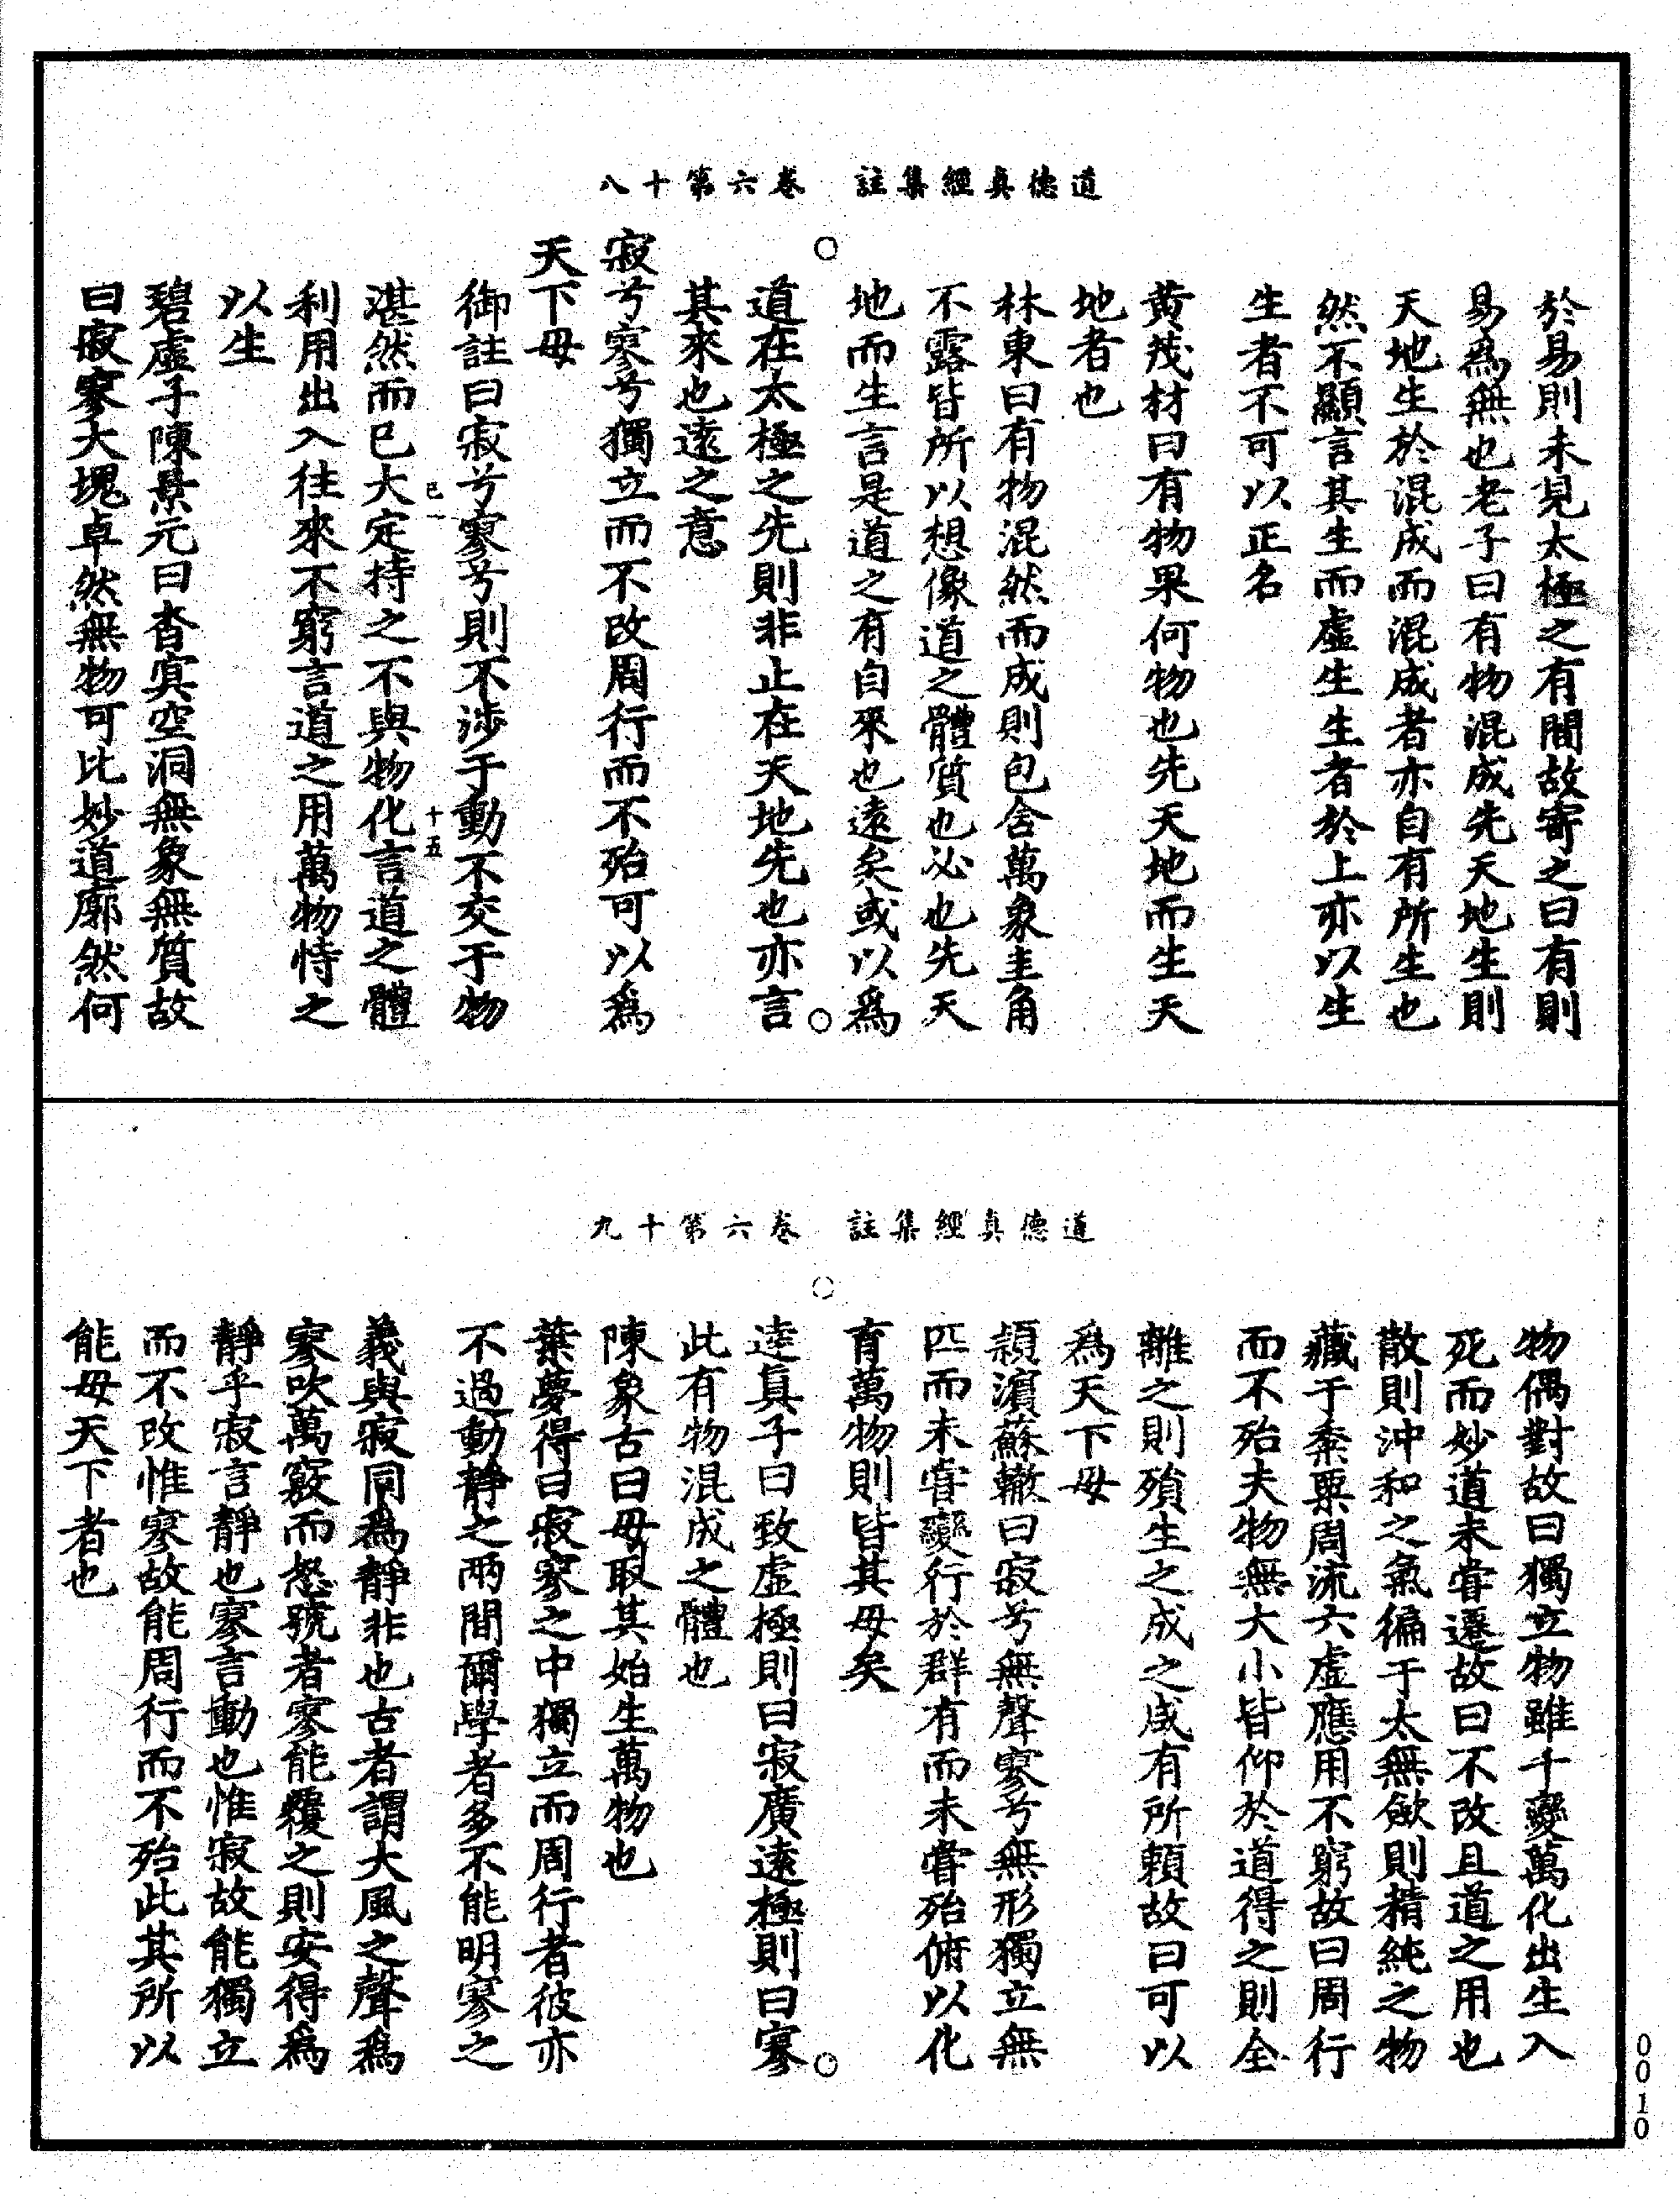 道德真經集註　卷六第十八
於易則未見太極之有間故寄之曰有則
易爲無也老子曰有物混成先天地生則
天地生於混成而混成者亦自有所生也
然不顯言其生而虛生生者於上亦以生
生者不可以正名
黃茂材曰有物果何物也先天地而生天
地者也
林東曰有物混然而成則包含萬象圭角
不露皆所以想像道之體質也必也先天
地而生言是道之有自來也遠矣或以爲
道在太極之先則非止在天地先也亦言
其來也遠之意
寂兮寥兮獨立而不改周行而不殆可以爲
天下母
御註曰寂兮寥兮則不涉于動不交于物
己一　十五
湛然而已大定持之不與物化言道之體
利用出入往來不窮言道之用萬物恃之
以生
碧虛子陳景元曰杳冥空洞無象無質故
曰寂寥大塊卓然無物可比妙道廓然何
道德真經集註　卷六第十九
物偶對故曰獨立物雖千變萬化出生入
死而妙道未甞遷故曰不改且道之用也
散則沖和之氣徧于太無斂則精純之物
藏于黍粟周流六虛應用不窮故曰周行
而不殆夫物無大小皆仰於道得之則全
離之則殞生之成之咸有所賴故曰可以
爲天下母
潁濵蘇轍曰寂兮無聲寥兮無形獨立無
匹而未甞變行於群有而未甞殆俯以化
育萬物則皆其母矣
達真子曰致虛極則曰寂廣遠極則曰寥
此有物混成之體也
陳象古曰母取其始生萬物也
葉夢得曰寂寥之中獨立而周行者彼亦
不過動靜之兩間爾學者多不能明寥之
義與寂同爲靜非也古者謂大風之聲爲
寥吹萬竅而怒號者寥能覆之則安得爲
靜乎寂言靜也寥言動也惟寂故能獨立
而不改惟寥故能周行而不殆此其所以
能母天下者也
0010